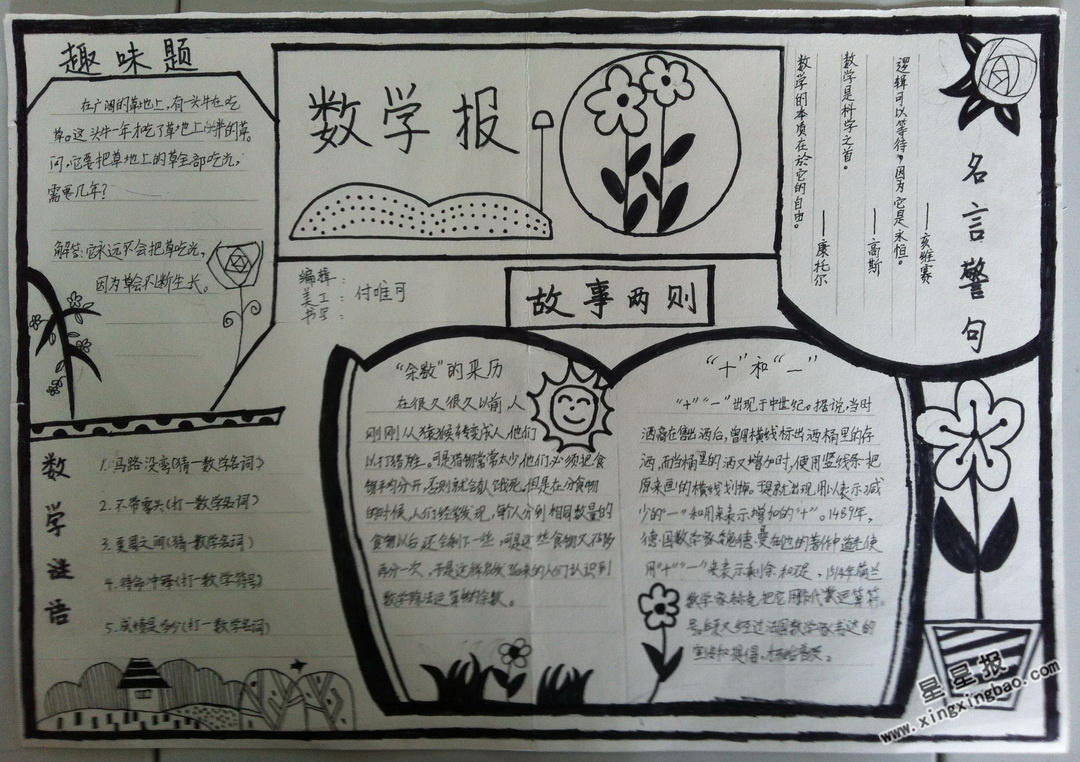 趣味题
在广阔的草地上,有一头牛在吃
草。这头牛一年才吃了草地上一半的草。
问,它要把草地上的草全部吃光,
需要几年?
解答:它永远不会把草吃光,
因为草会不断生长。
数学报
编辑:
美工:付唯可
书写:
数学的本质在於它的自由。
——康托尔
数学是科学之首。
——高斯
逻辑可以等待,因为它是永恒。
——亥维赛
名言警句
故事两则
“余数”的来历
在很久很久以前,人
刚刚从猿猴转变成人,他们
以打猎为生。可是猎物常常太少,他们必须把食
物平均分开,否则就会有人饿死。但是在分食物
的时候,人们经常发现,每个人分到相同数量的
食物以后,还会剩下一些,可是这些食物又不够
再分一次,于是这样
人们认识到
数学除法运算中的余数。
“+”和“-”
“+”“-”出现于中世纪。据说,当时
酒商在售出酒后,曾用横线标出酒桶里的存
酒,而当桶里的酒又增加时,便用竖线条把
原来画的横线划掉。于是就出现用以表示减
少的“-”和用来表示增加的“+”。1489年,
德国数学家魏德曼在他的著作中首先使
用“+”“-”来表示剩余和
1514年荷兰
数学家
把它用作代数运算符
号,后又经过法国数学家韦达的
宣传和提倡,
数学谜语
1.马路没弯(猜一数学名词)
2.不带零头(打一数学名词)
3.夏周之间(猜一数学名词)
4.
(打一数学符号)
5.成绩是多少(打一数学名词)
星星报
www.xingxingbao.com